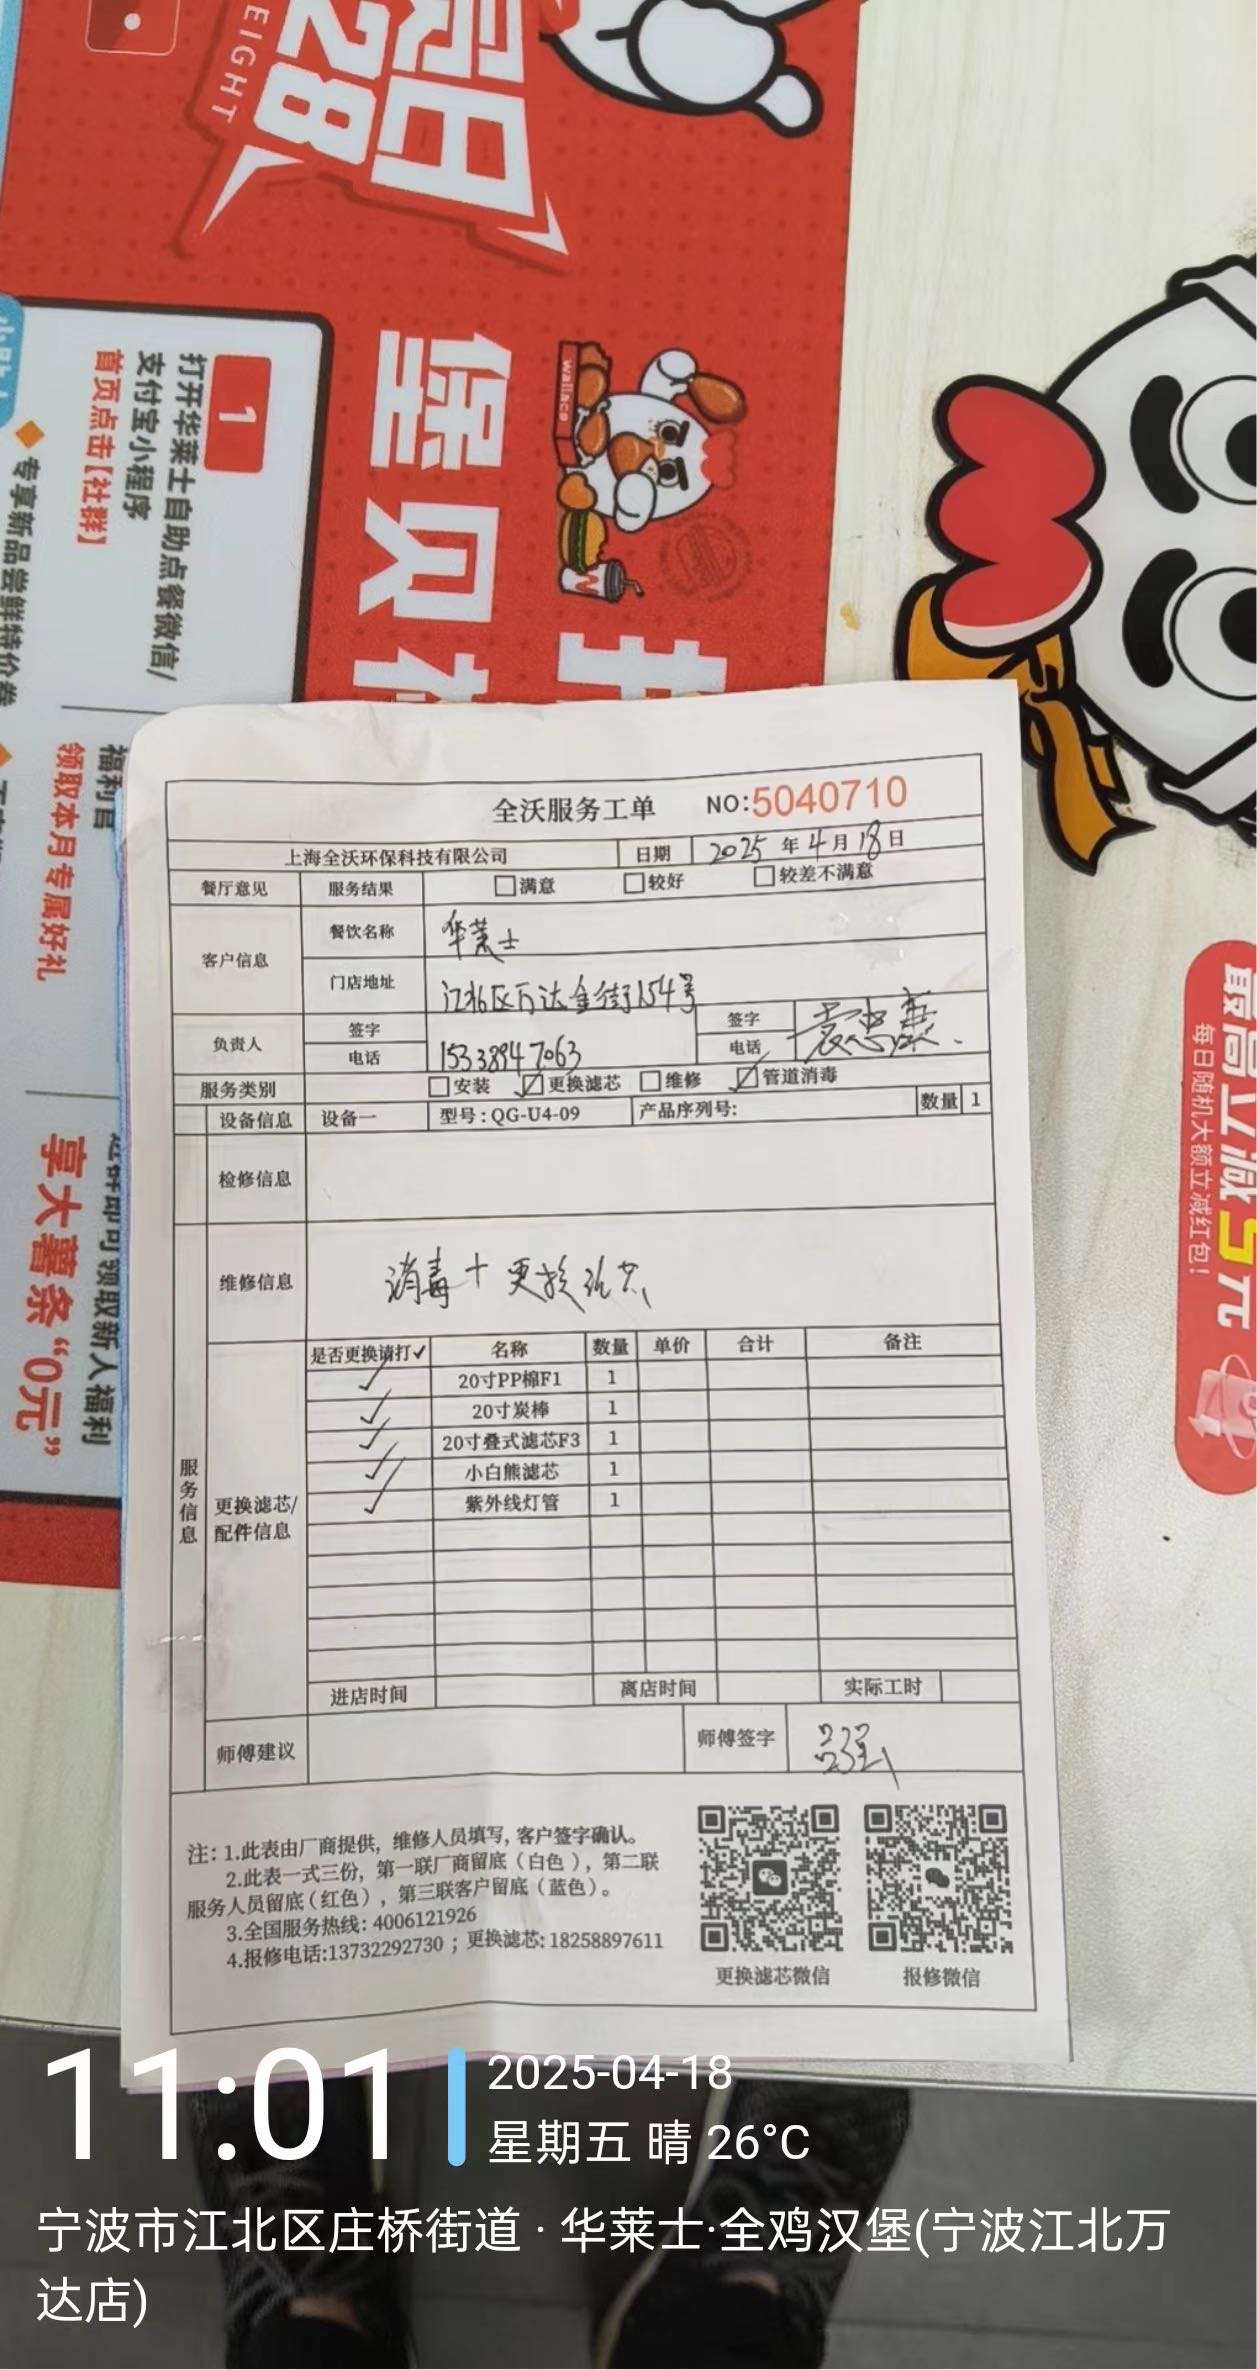 EIGHT
28
堡贝
wallace
1
打开华莱士自助点餐微信/
支付宝小程序
首页点击【社群】
专享新品尝鲜特价券
领取本月专属好礼
享大薯条“0元”
最高立减5元
每日随机大额立减红包！
全沃服务工单 NO:5040710
上海全沃环保科技有限公司 日期 2025 年 4 月 18 日
餐厅意见 服务结果 □满意 □较好 □较差不满意
客户信息 餐饮名称 华莱士
门店地址 江北区万达金街154号
负责人 签字 签字
电话 15338947063 电话
服务类别 □安装 ☑更换滤芯 □维修 ☑管道消毒
设备信息 设备一 型号：QG-U4-09 产品序列号： 数量 1
检修信息
维修信息 消毒+更换滤芯
服务信息
更换滤芯/
配件信息
是否更换请打✓ 名称 数量 单价 合计 备注
✓ 20寸PP棉F1 1
✓ 20寸炭棒 1
✓ 20寸叠式滤芯F3 1
✓ 小白熊滤芯 1
✓ 紫外线灯管 1
进店时间 离店时间 实际工时
师傅建议 师傅签字 吕强
注：1.此表由厂商提供，维修人员填写，客户签字确认。
2.此表一式三份，第一联厂商留底（白色），第二联
服务人员留底（红色），第三联客户留底（蓝色）。
3.全国服务热线：4006121926
4.报修电话:13732292730；更换滤芯:18258897611
更换滤芯微信 报修微信
11:01
2025-04-18
星期五 晴 26°C
宁波市江北区庄桥街道·华莱士·全鸡汉堡(宁波江北万
达店)